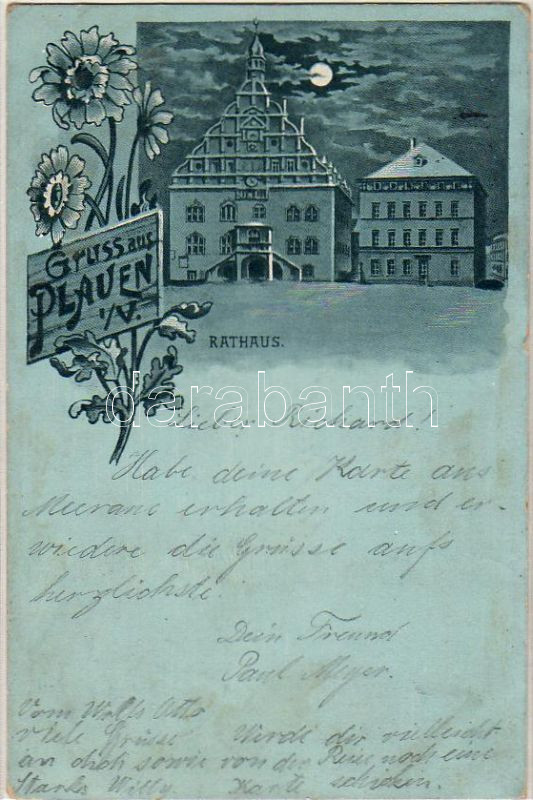 Gruss aus
PLAUEN
i/V.
RATHAUS.
darabanth
Lieber Richard!
Habe deine Karte aus
Meerane erhalten und er-
wiedere die Grüsse aufs
herzlichste!
Dein Freund
Paul Meyer.
Vom Wolfs Otto
viele Grüsse
an dich sowie von
Starks Willy
Werde dir vielleicht
der Reise noch eine
Karte schicken.